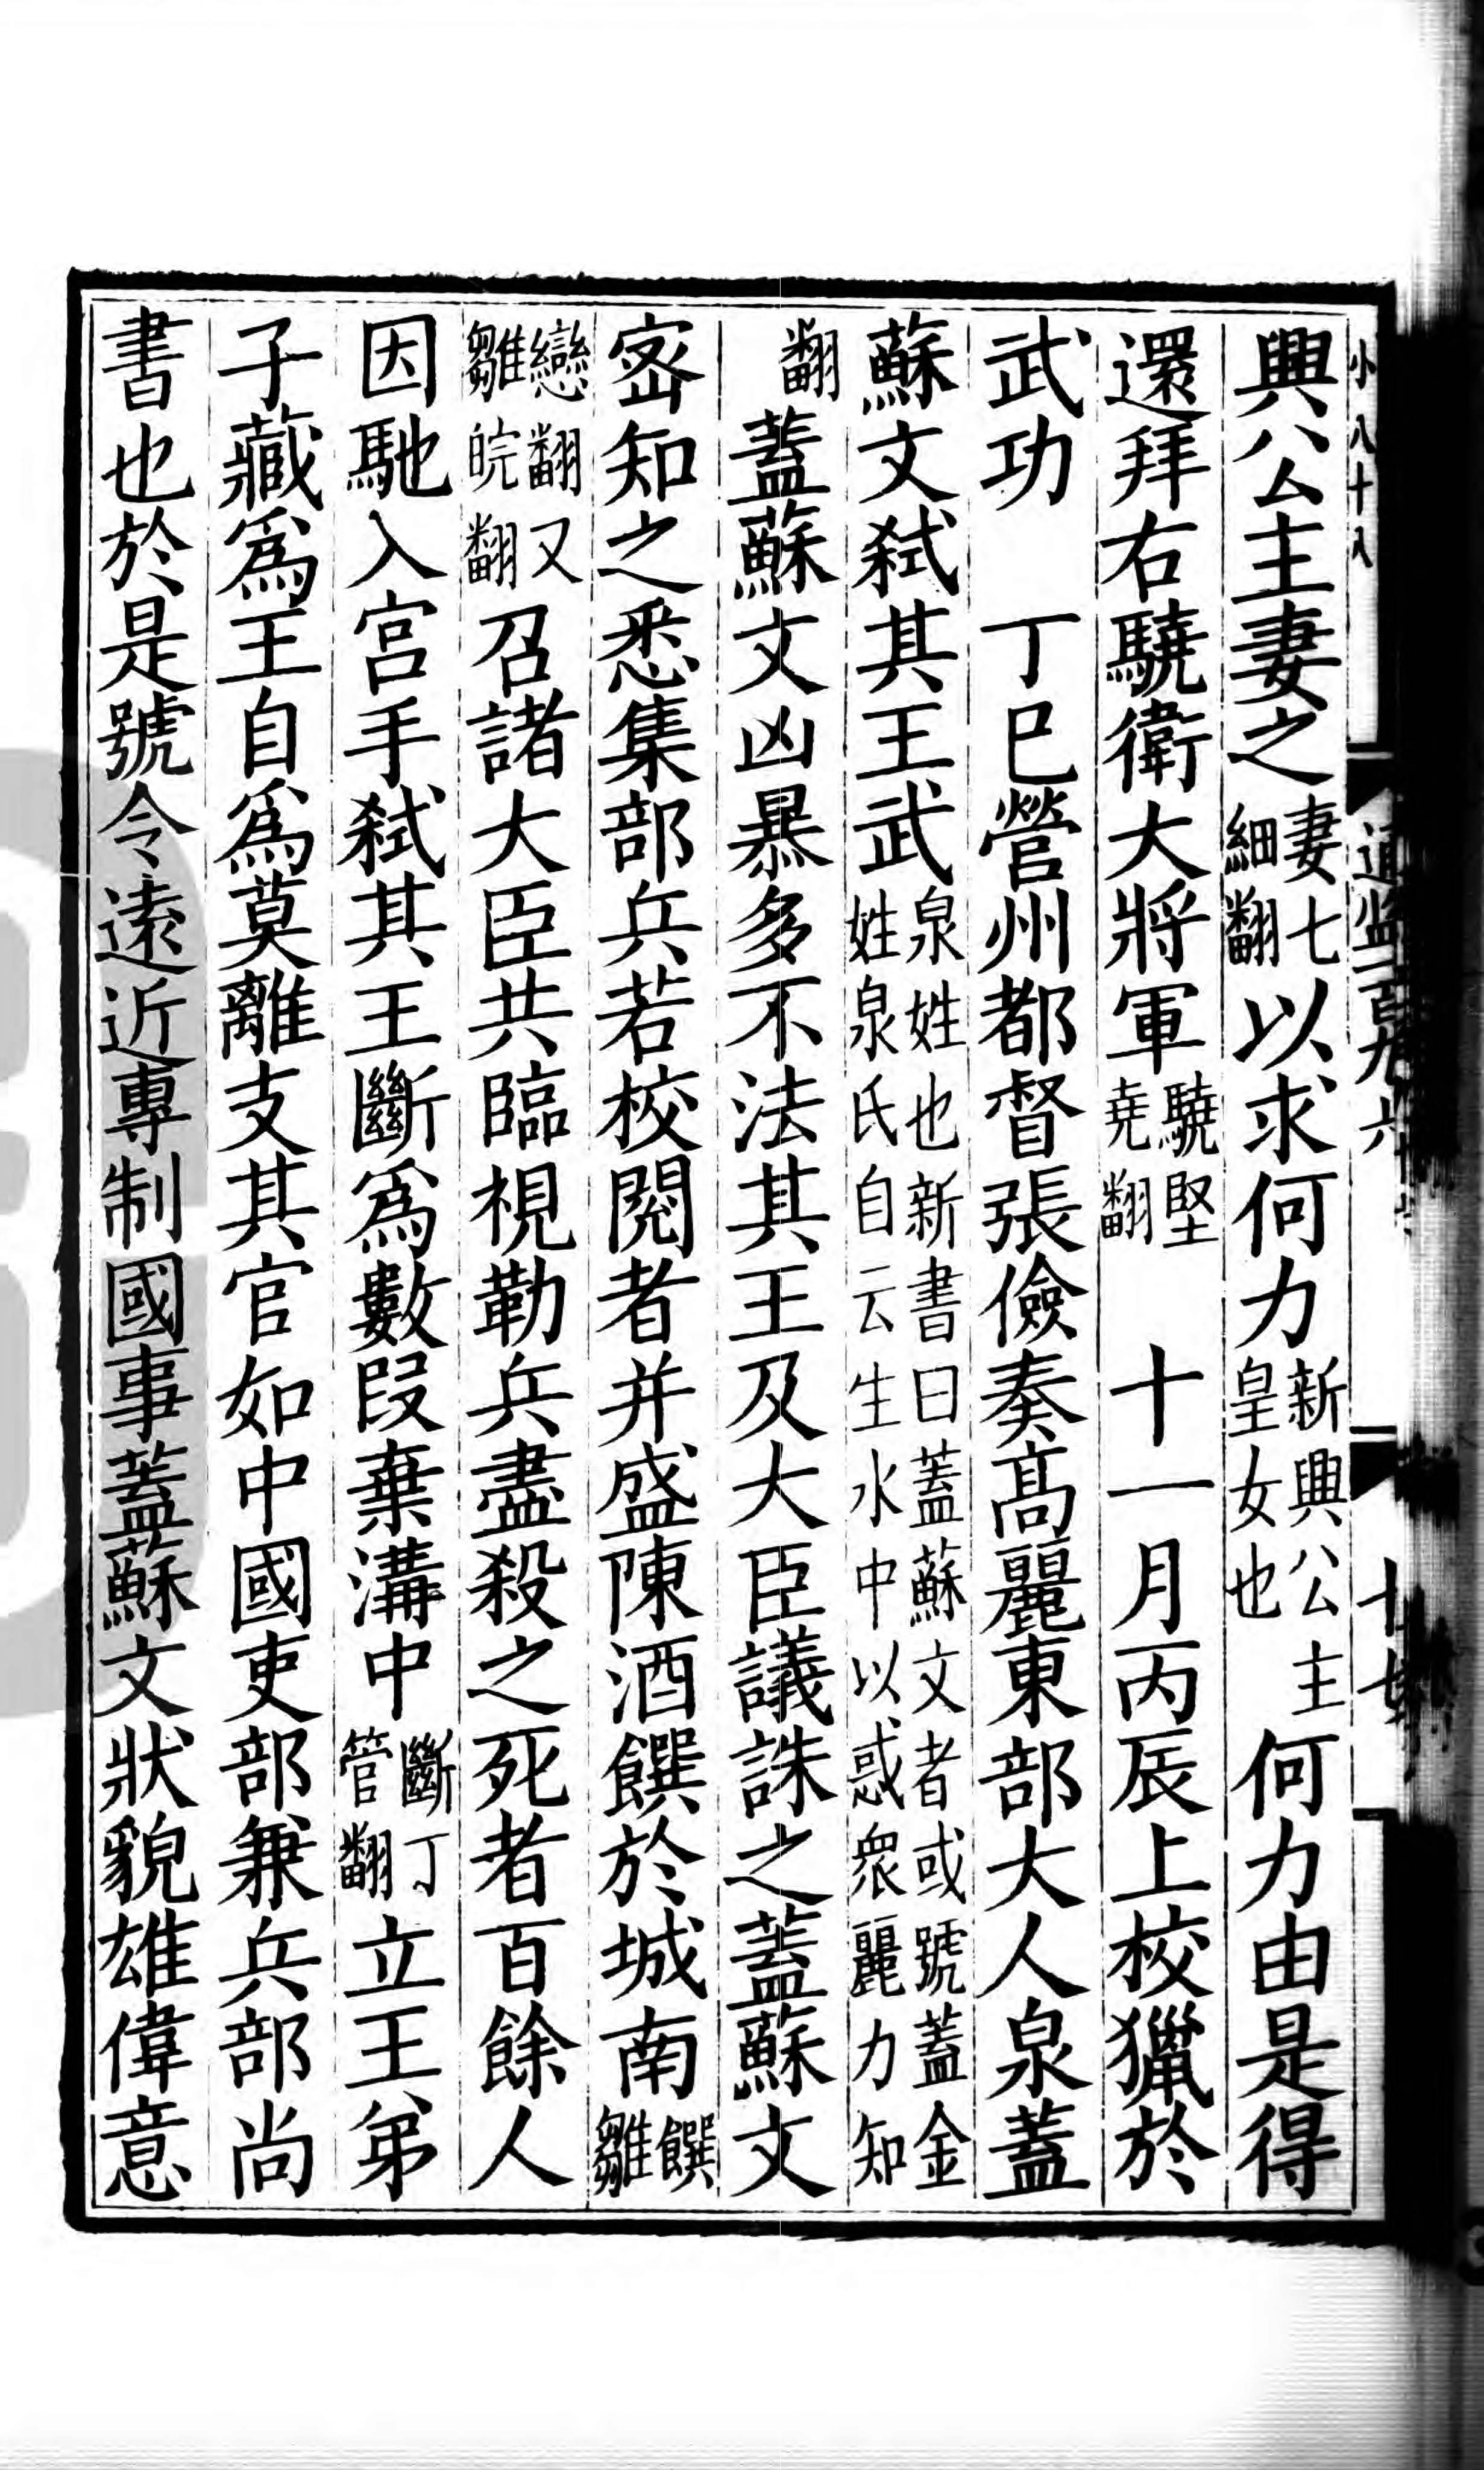 小八十八
通鑑一百九十六
十七
興公主妻之妻七細翻以求何力新興公主皇女也何力由是得
還拜右驍衛大將軍驍堅堯翻　十一月丙辰上校獵於
武功　丁巳營州都督張儉奏高麗東部大人泉蓋
蘇文弑其王武泉姓也新書曰蓋蘇文者或號蓋金姓泉氏自云生水中以惑衆麗力知
翻蓋蘇文凶暴多不法其王及大臣議誅之蓋蘇文
密知之悉集部兵若校閱者并盛陳酒饌於城南饌雛
戀翻又雛皖翻召諸大臣共臨視勒兵盡殺之死者百餘人
因馳入宮手弑其王斷爲數段棄溝中斷丁管翻立王弟
子藏爲王自爲莫離支其官如中國吏部兼兵部尚
書也於是號令遠近專制國事蓋蘇文狀貌雄偉意